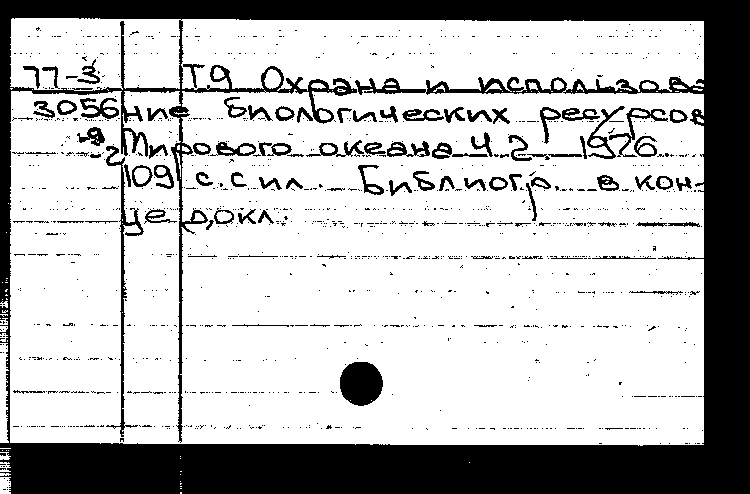 77-3 Т.9 Охрана и использова
3056 ние биологических ресурсов
-9 Мирового океана Ч.2. 1976.
-2
109 с. с ил. Библиогр. в кон-
це докл.